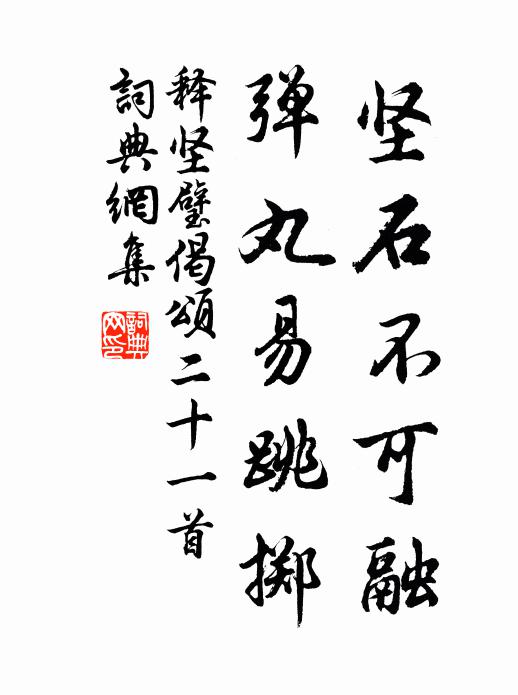 坚石不可融
弹丸易跳掷
释坚璧偈颂二十一首
詞典網集
詞典网印